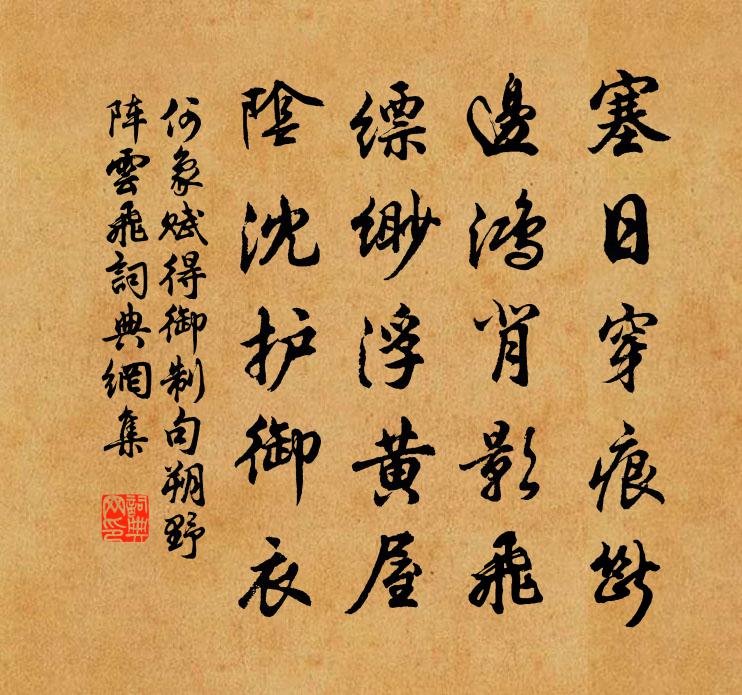 塞日穿痕断
邊鴻背影飛
缥缈浮黄屋
陰沈护御衣
何象赋得御制句朔野
阵雲飛詞典網集
詞典
网印